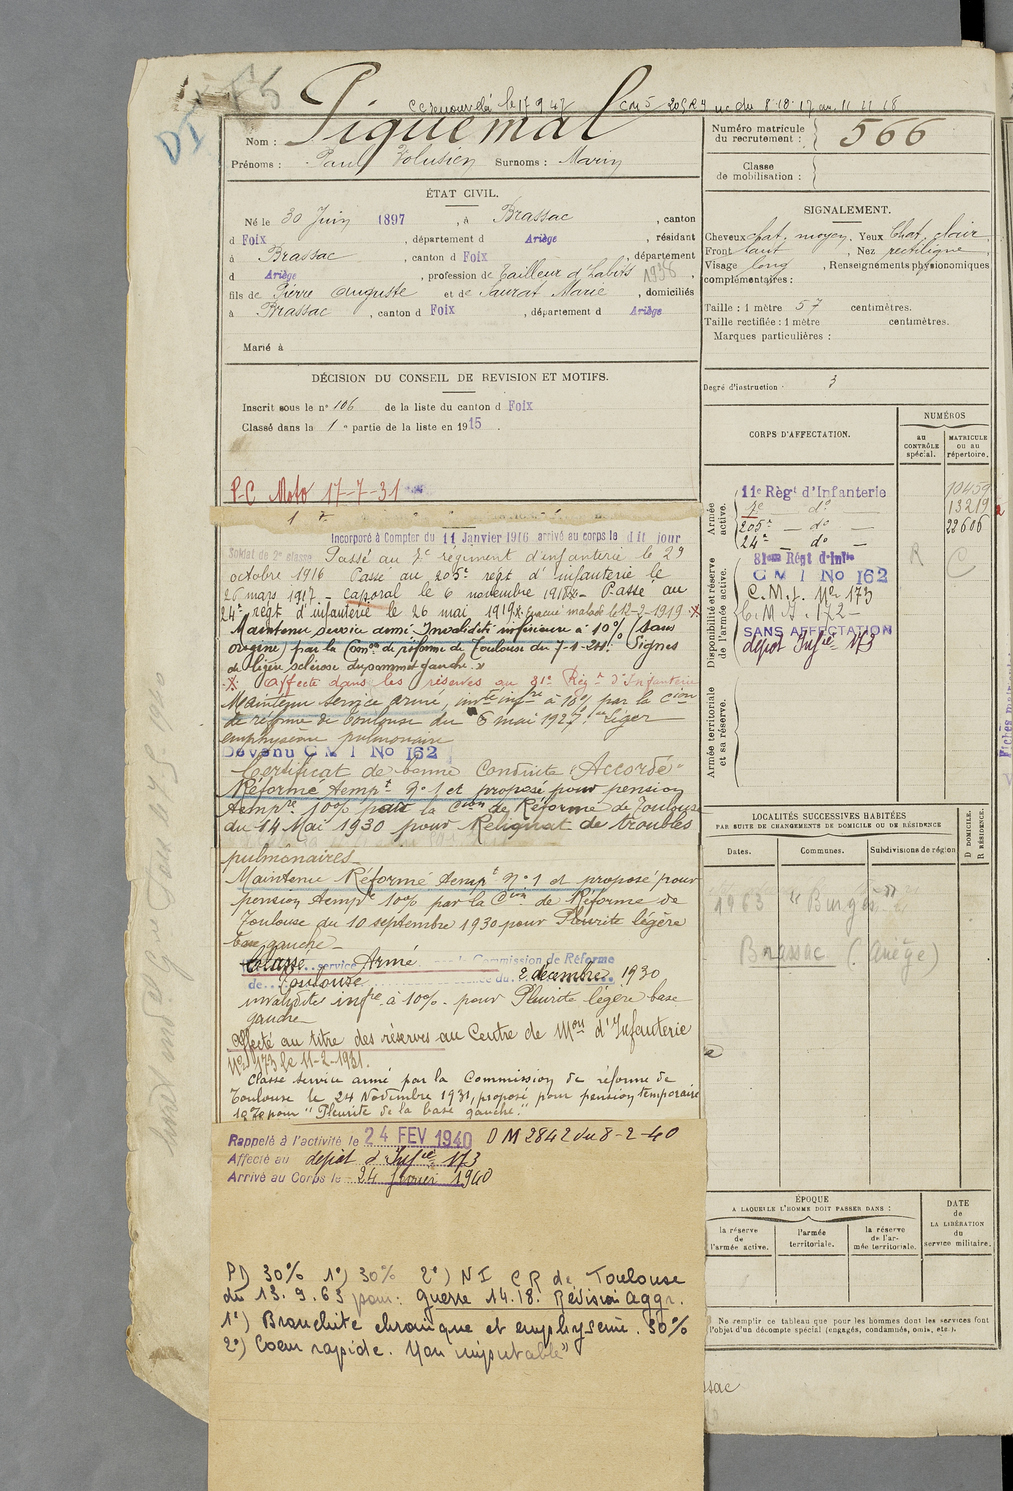 DI
F5
CC renouvelé le 17 9 47
CM 5 205 RY uc du 8.10.17 au 11 11 18
Nom : Piquemal
Prénoms : Paul Volusien Surnoms : Marny
ÉTAT CIVIL.
Né le 30 Juin 1897, à Brassac, canton
d Foix, département d Ariège, résidant
à Brassac, canton d Foix, département
d Ariège, profession de tailleur d'habits 1938,
fils de Pierre Auguste et de Saurat Marie, domiciliés
à Brassac, canton d Foix, département d Ariège
Marié à
DÉCISION DU CONSEIL DE REVISION ET MOTIFS.
Inscrit sous le n° 106 de la liste du canton d Foix
Classé dans la 1re partie de la liste en 1915.
P-C Moto 17-7-31
Incorporé à Compter du 11 Janvier 1916 arrivé au corps le dit jour
Soldat de 2e classe Passé au 7e régiment d'infanterie le 29
octobre 1916 Passé au 205e régt d'infanterie le
26 mars 1917 - Caporal le 6 novembre 1918 - Passé au
24e régt d'infanterie le 26 mai 1919 x Evacué malade le 12-2-1919 x
Maintenu service armé. Invalidité inférieure à 10% (sans
origine) par la Comon de réforme de Toulouse du 7-1-21. Signes
de légère sclérose du sommet gauche. x
x Affecté dans les réserves au 81e Régt d'Infanterie
Maintenu service armé, inté infre à 10% par la Cion
de réforme de Toulouse du 6 mai 1927. Léger
emphysème pulmonaire
Devenu C M I No 162
Certificat de bonne Conduite "Accordé"
Réformé tempt N° 1 et proposé pour pension
tempre 10% par la Cion de Réforme de Toulouse
du 14 Mai 1930 pour Reliquat de troubles
pulmonaires
Maintenu Réformé tempt N° 1 et proposé pour
pension tempre 10% par la Cion de Réforme de
Toulouse du 10 septembre 1930 pour Pleurite légère
base gauche
Classé service Armé Commission de Réforme
de Toulouse du 2 décembre 1930
invalidité infre à 10% pour Pleurite légère base
gauche
Affecté au titre des réserves au Centre de Mon d'Infanterie
N° 173 le 11-2-1931.
Classé service armé par la Commission de réforme de
Toulouse le 24 Novembre 1931, proposé pour pension temporaire
10% pour "Pleurite de la base gauche."
Rappelé à l'activité le 24 FEV 1940 DM 2842 du 8-2-40
Affecté au dépôt d'Infie 173
Arrivé au Corps le 24 février 1940
PD 30% 1°) 30% 2°) NI CR de Toulouse
du 13.9.63 pour: guerre 14.18. Révision aggr.
1°) Bronchite chronique et emphysème. 30%
2°) Coeur rapide. Non imputable"
Numéro matricule
du recrutement : 566
Classe
de mobilisation :
SIGNALEMENT.
Cheveux chat. moyen. Yeux Chat. clair
Front haut, Nez rectiligne
Visage long, Renseignements physionomiques
complémentaires :
Taille : 1 mètre 57 centimètres.
Taille rectifiée : 1 mètre centimètres.
Marques particulières :
Degré d'instruction : 3
CORPS D'AFFECTATION.
NUMÉROS
AU
CONTRÔLE
spécial.
MATRICULE
ou au
répertoire.
Armée
active.
11e Régt d'Infanterie 10459
7e — do — 13219
205e — do — 22606
24e — do —
Disponibilité et réserve
de l'armée active.
81eme Régt d'Infie R C
C M I No 162
C. M. I. No 173
C. M. I. 172
SANS AFFECTATION
dépot Infie 173
Armée territoriale
et sa réserve.
LOCALITÉS SUCCESSIVES HABITÉES
PAR SUITE DE CHANGEMENTS DE DOMICILE OU DE RÉSIDENCE
Dates.
Communes.
Subdivisions de région
D DOMICILE.
R RÉSIDENCE.
1963 "Burges"
Brassac (Ariège)
ÉPOQUE
A LAQUELLE L'HOMME DOIT PASSER DANS :
la réserve
de
l'armée active.
l'armée
territoriale.
la réserve
de l'ar-
mée territoriale.
DATE
de
LA LIBÉRATION
du
service militaire.
Ne remplir ce tableau que pour les hommes dont les services font
l'objet d'un décompte spécial (engagés, condamnés, omis, etc.).
ssac